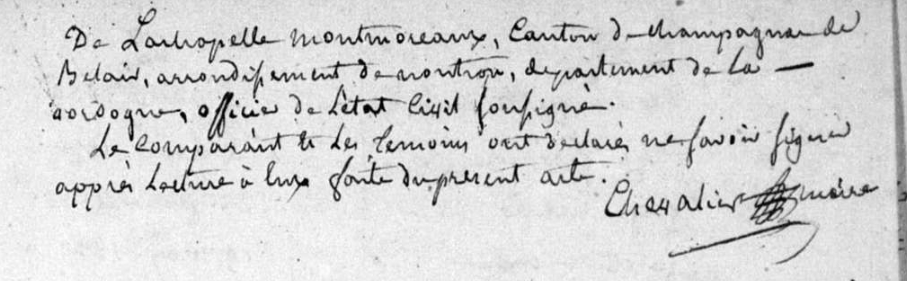 De Lachapelle montmoreaux, Canton de champagnac de
Belair, arrondissement de nontron, departement de La —
dordogne, officier de L'etat Civil soussigné.
Le Comparant et Les temoins ont declarés ne savoir signer
apprès Lecture à Eux faite du present acte.
Chevalier maire